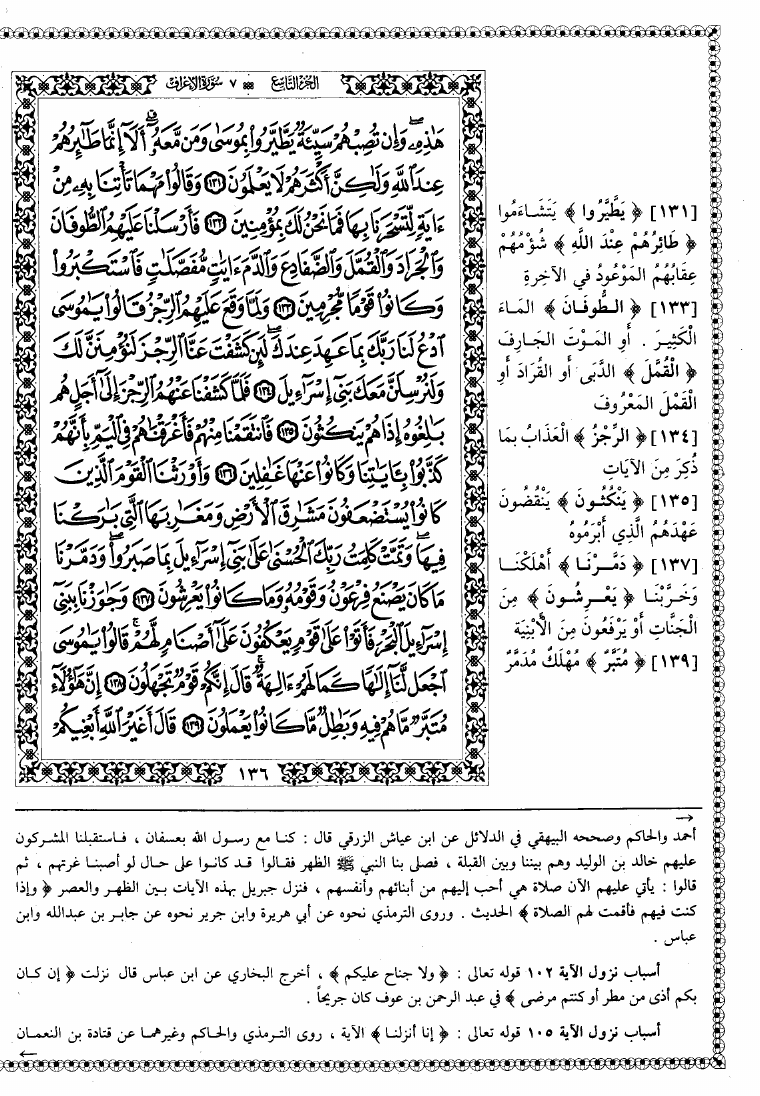 الجزء التاسع ٧ سورة الأعراف
هَٰذِهِۦ وَإِن تُصِبۡهُمۡ سَيِّئَةٞ يَطَّيَّرُواْ بِمُوسَىٰ وَمَن مَّعَهُۥٓۗ أَلَآ إِنَّمَا طَٰٓئِرُهُمۡ
عِندَ ٱللَّهِ وَلَٰكِنَّ أَكۡثَرَهُمۡ لَا يَعۡلَمُونَ ١٣١ وَقَالُواْ مَهۡمَا تَأۡتِنَا بِهِۦ مِنۡ
ءَايَةٖ لِّتَسۡحَرَنَا بِهَا فَمَا نَحۡنُ لَكَ بِمُؤۡمِنِينَ ١٣٢ فَأَرۡسَلۡنَا عَلَيۡهِمُ ٱلطُّوفَانَ
وَٱلۡجَرَادَ وَٱلۡقُمَّلَ وَٱلضَّفَادِعَ وَٱلدَّمَ ءَايَٰتٖ مُّفَصَّلَٰتٖ فَٱسۡتَكۡبَرُواْ
وَكَانُواْ قَوۡمٗا مُّجۡرِمِينَ ١٣٣ وَلَمَّا وَقَعَ عَلَيۡهِمُ ٱلرِّجۡزُ قَالُواْ يَٰمُوسَى
ٱدۡعُ لَنَا رَبَّكَ بِمَا عَهِدَ عِندَكَۖ لَئِن كَشَفۡتَ عَنَّا ٱلرِّجۡزَ لَنُؤۡمِنَنَّ لَكَ
وَلَنُرۡسِلَنَّ مَعَكَ بَنِيٓ إِسۡرَٰٓءِيلَ ١٣٤ فَلَمَّا كَشَفۡنَا عَنۡهُمُ ٱلرِّجۡزَ إِلَىٰٓ أَجَلٍ هُم
بَٰلِغُوهُ إِذَا هُمۡ يَنكُثُونَ ١٣٥ فَٱنتَقَمۡنَا مِنۡهُمۡ فَأَغۡرَقۡنَٰهُمۡ فِي ٱلۡيَمِّ بِأَنَّهُمۡ
كَذَّبُواْ بِـَٔايَٰتِنَا وَكَانُواْ عَنۡهَا غَٰفِلِينَ ١٣٦ وَأَوۡرَثۡنَا ٱلۡقَوۡمَ ٱلَّذِينَ
كَانُواْ يُسۡتَضۡعَفُونَ مَشَٰرِقَ ٱلۡأَرۡضِ وَمَغَٰرِبَهَا ٱلَّتِي بَٰرَكۡنَا
فِيهَاۖ وَتَمَّتۡ كَلِمَتُ رَبِّكَ ٱلۡحُسۡنَىٰ عَلَىٰ بَنِيٓ إِسۡرَٰٓءِيلَ بِمَا صَبَرُواْۖ وَدَمَّرۡنَا
مَا كَانَ يَصۡنَعُ فِرۡعَوۡنُ وَقَوۡمُهُۥ وَمَا كَانُواْ يَعۡرِشُونَ ١٣٧ وَجَٰوَزۡنَا بِبَنِيٓ
إِسۡرَٰٓءِيلَ ٱلۡبَحۡرَ فَأَتَوۡاْ عَلَىٰ قَوۡمٖ يَعۡكُفُونَ عَلَىٰٓ أَصۡنَامٖ لَّهُمۡۚ قَالُواْ يَٰمُوسَى
ٱجۡعَل لَّنَآ إِلَٰهٗا كَمَا لَهُمۡ ءَالِهَةٞۚ قَالَ إِنَّكُمۡ قَوۡمٞ تَجۡهَلُونَ ١٣٨ إِنَّ هَٰٓؤُلَآءِ
مُتَبَّرٞ مَّا هُمۡ فِيهِ وَبَٰطِلٞ مَّا كَانُواْ يَعۡمَلُونَ ١٣٩ قَالَ أَغَيۡرَ ٱللَّهِ أَبۡغِيكُمۡ
١٣٦
[١٣١] ﴿ يَطَّيَّرُوا ﴾ يَتَشَاءَمُوا
﴿ طَائِرُهُمْ عِنْدَ اللَّهِ ﴾ شُؤْمُهُمْ
عِقَابُهُمُ المَوْعُودُ في الآخِرةِ
[١٣٣] ﴿ الـطُّوفَانَ ﴾ المَـاءَ
الْكَثِيـرَ . أَوِ المَـوْتَ الجَـارِفَ
﴿ الْقُمَّلَ ﴾ الدَّبَى أو القُرَادَ أو
الْقَمْلَ المَعْرُوفَ
[١٣٤] ﴿ الرِّجْزُ ﴾ الْعَذَابُ بِمَا
ذُكِرَ مِنَ الآيَاتِ
[١٣٥] ﴿ يَنْكُثُونَ ﴾ يَنْقُضُونَ
عَهْدَهُمُ الَّذِي أَبْرَمُوهُ
[١٣٧] ﴿ دَمَّـرْنَـا ﴾ أَهْلَكْنَـا
وَخَرَّبْنَـا ﴿ يَعْـرِشُـونَ ﴾ مِنَ
الْجَنَّاتِ أَوْ يَرْفَعُونَ مِنَ الأَبْنِيَةِ
[١٣٩] ﴿ مُتَبَّرٌ ﴾ مُهْلَكٌ مُدَمَّرٌ
→
أحمد والحاكم وصححه البيهقي في الدلائل عن ابن عياش الزرقي قال : كنـا مع رسـول الله بعسفان ، فـاستقبلنا المشـركون
عليهم خالد بن الوليد وهم بيننا وبين القبلة ، فصلى بنا النبي ﷺ الظهر فقـالوا قـد كانـوا على حـال لو أصبنـا غرتهم ، ثم
قالوا : يأتي عليهم الآن صلاة هي أحب إليهم من أبنائهم وأنفسهم ، فنزل جبريل بهذه الآيات بين الظهر والعصر ﴿ وإذا
كنت فيهم فأقمت لهم الصلاة ﴾ الحديث . وروى الترمذي نحوه عن أبي هريرة وابن جرير نحوه عن جابـر بن عبدالله وابن
عباس .
أسباب نزول الآية ١٠٢ قوله تعالى : ﴿ ولا جناح عليكم ﴾ ، أخرج البخاري عن ابن عباس قال نزلت ﴿ إن كـان
بكم أذى من مطر أو كنتم مرضى ﴾ في عبد الرحمن بن عوف كان جريحاً .
أسباب نزول الآية ١٠٥ قوله تعالى : ﴿ إنا أنزلنـا ﴾ الآية ، روى التـرمذي والحـاكم وغيرهمـا عن قتادة بن النعمـان
←